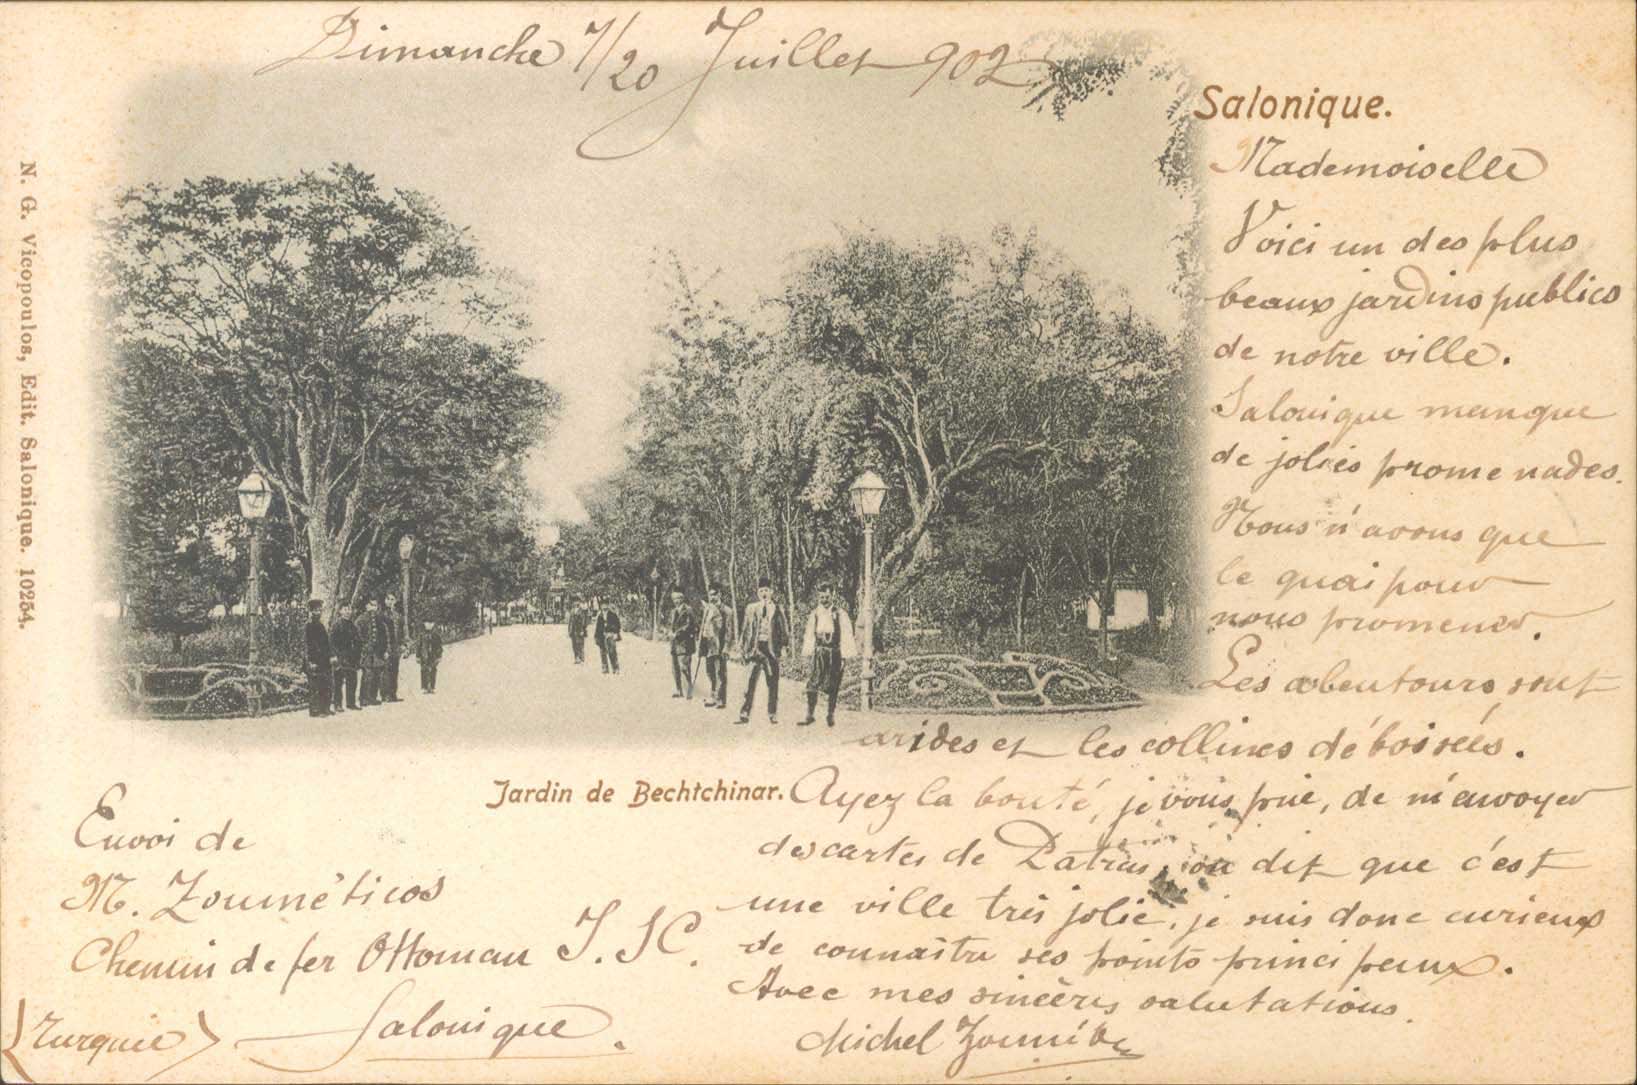 Dimanche 7/20 Juillet 902
Salonique.
Mademoiselle
Voici un des plus
beaux jardins publics
de notre ville.
Salonique manque
de jolies promenades.
Nous n'avons que
le quai pour
nous promener.
Les abentours sont
arides et les collines déboisées.
Ayez la bonté, je vous prie, de m'envoyer
des cartes de Patras, on dit que c'est
une ville très jolie, je suis donc curieux
de connaître ses points principaux.
Avec mes sincères salutations.
Michel
Jardin de Bechtchinar.
Envoi de
M. Zouméticos
Chemin de fer Ottoman J. S C.
(Turquie) Salonique.
N. G. Vicopoulos, Edit. Salonique. 10254.